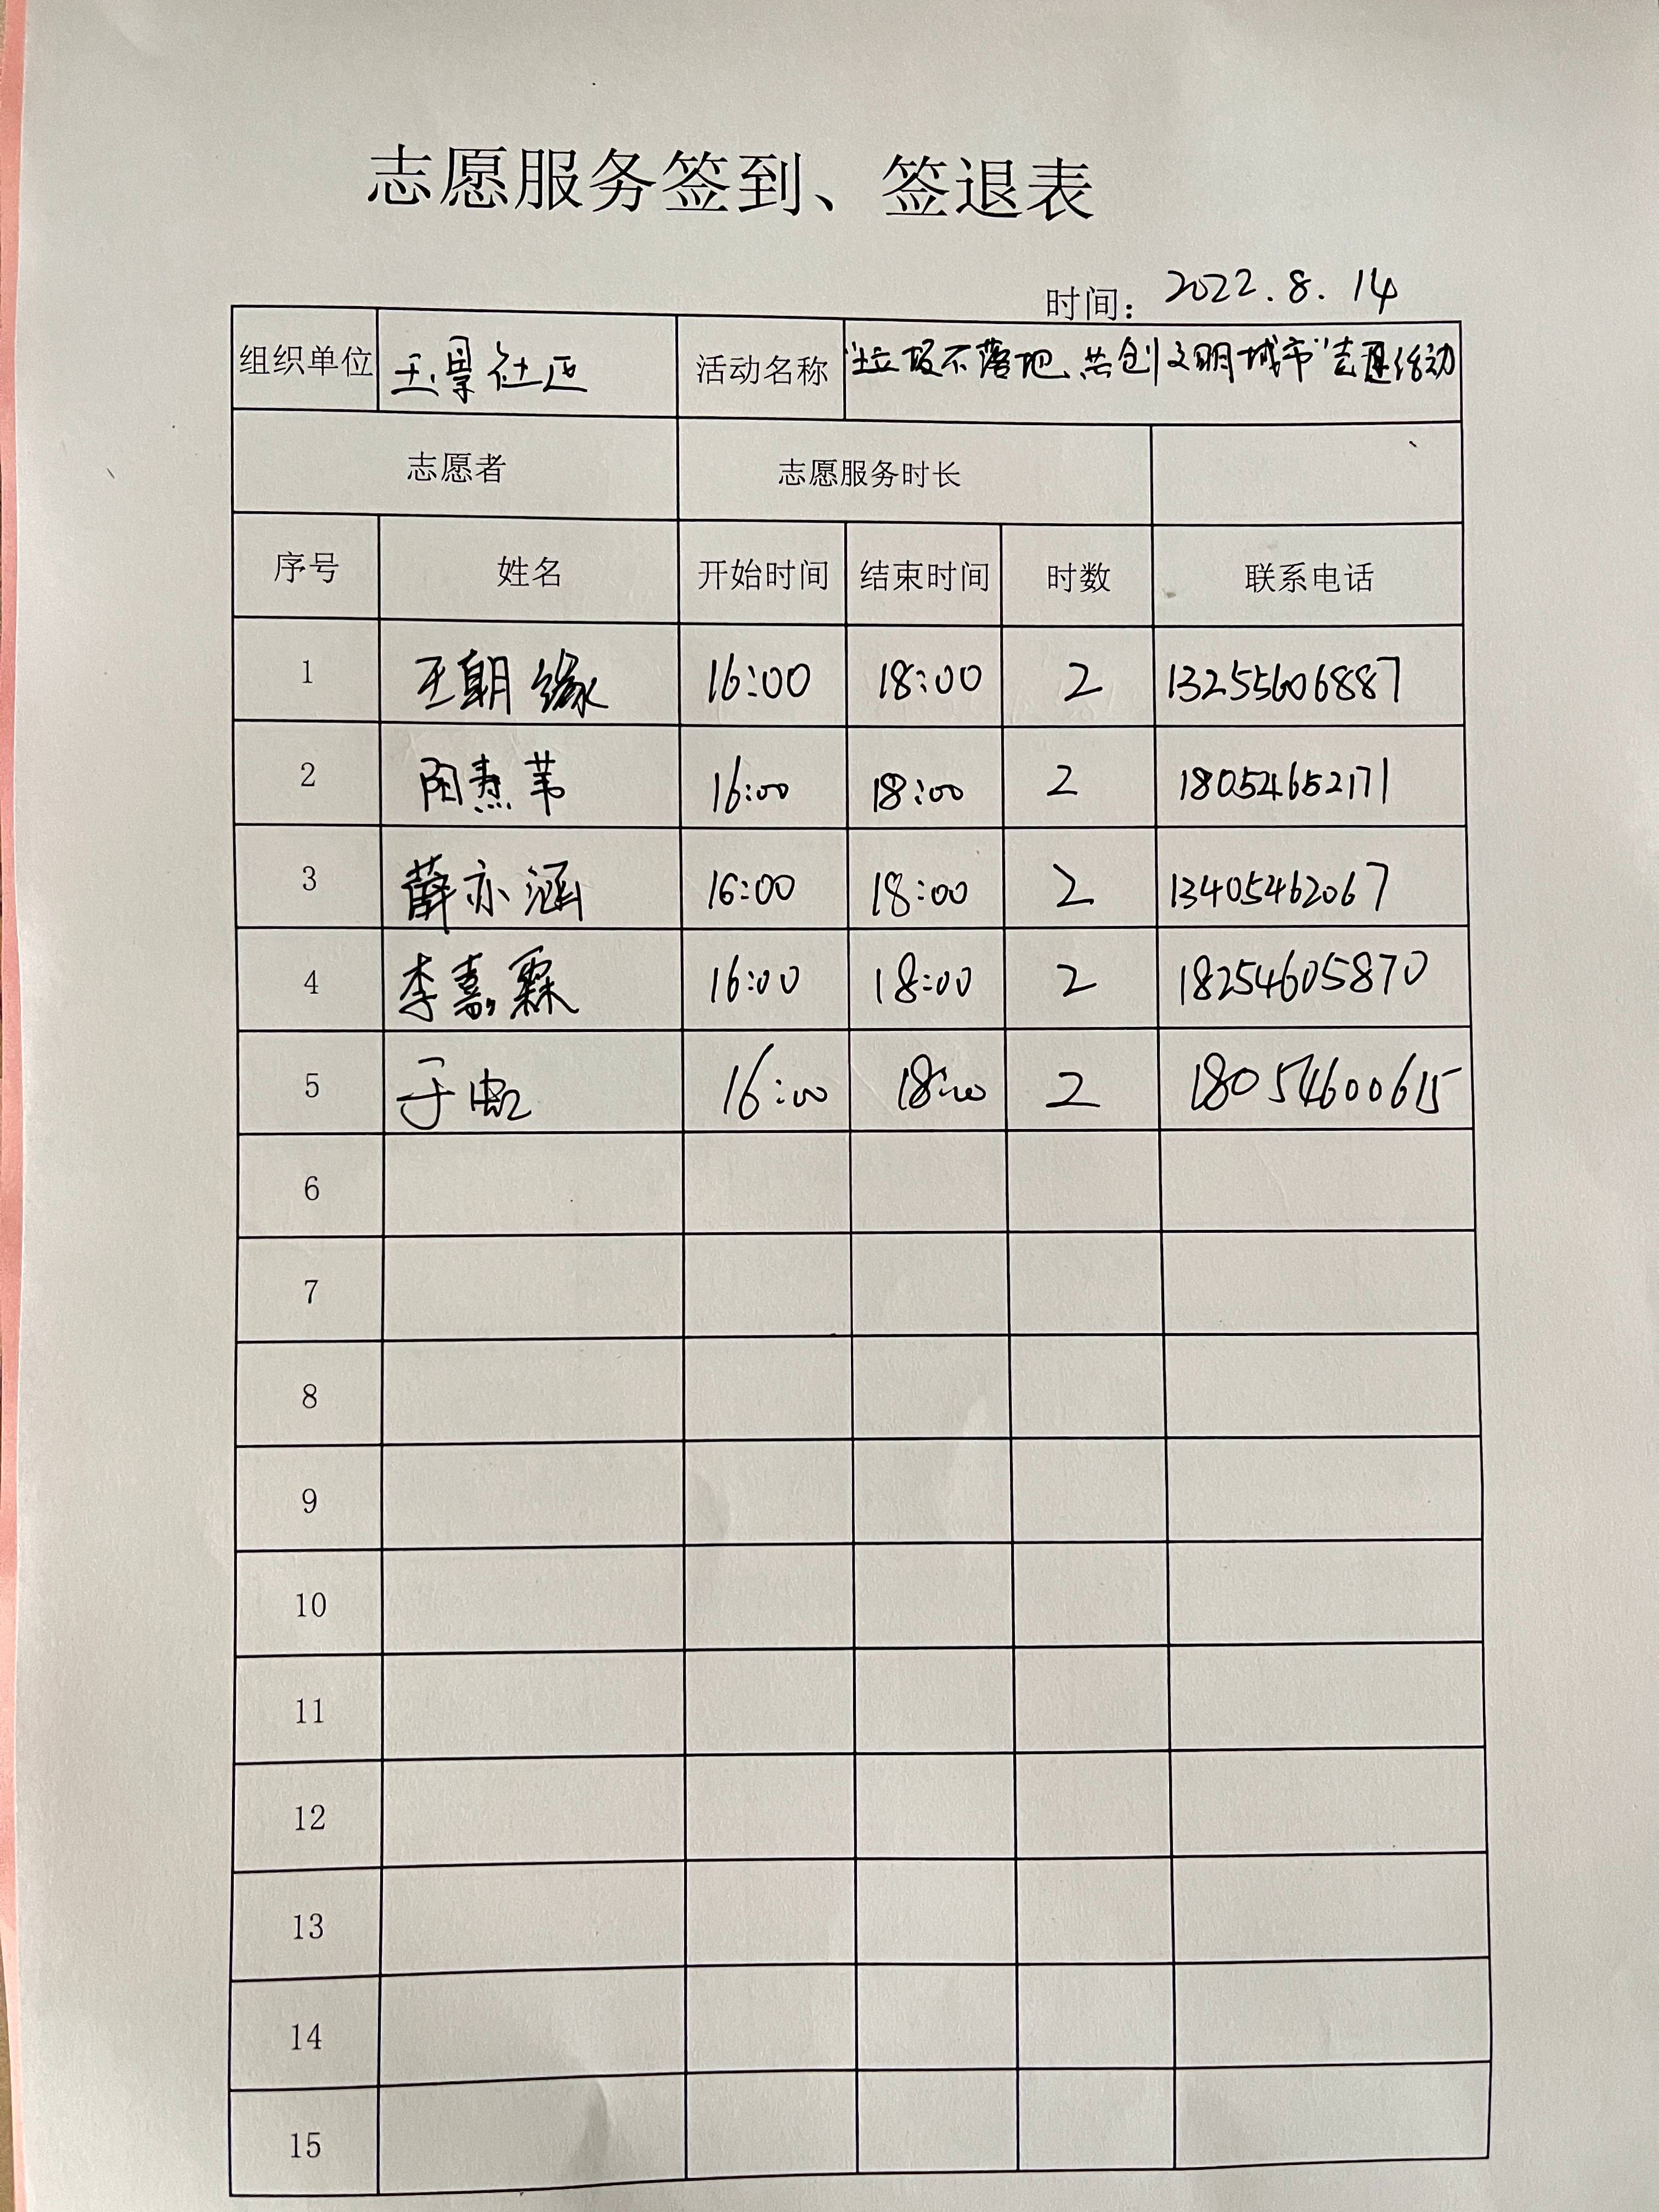 志愿服务签到、签退表
时间：2022.8.14
组织单位 玉景社区 活动名称 “垃圾不落地、共创文明城市”志愿活动
志愿者 志愿服务时长
序号 姓名 开始时间 结束时间 时数 联系电话
1 王朝缘 16:00 18:00 2 13255606887
2 16:00 18:00 2 18054652171
3 薛亦涵 16:00 18:00 2 13405462067
4 李嘉霖 16:00 18:00 2 18254605870
5 于虹 16:00 18:00 2 18054600615
6
7
8
9
10
11
12
13
14
15